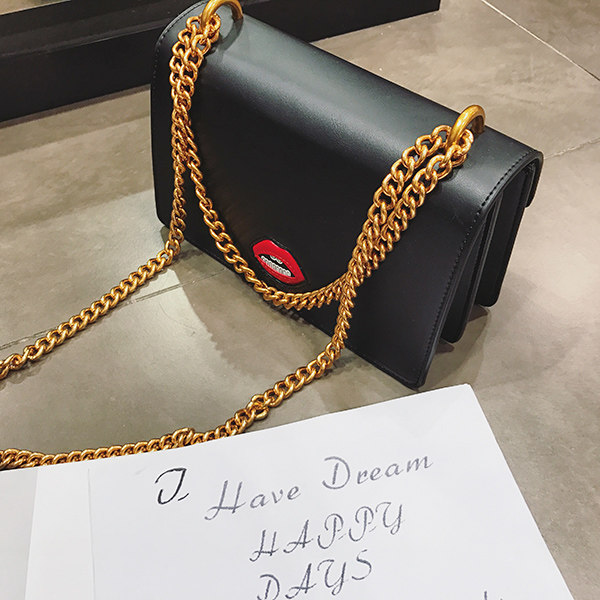 I Have Dream
HAPPY
DAYS